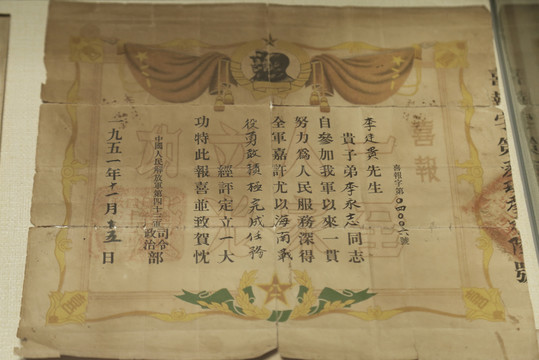 喜報
喜報字第〇四〇〇六號
李廷黃先生
貴子弟李永志同志
自參加我軍以來一貫
努力為人民服務深得
全軍嘉許尤以海南戰
役勇敢積極完成任務
經評定立一大
功特此報喜並致賀忱
中國人民解放軍第四十三軍
司令
政治部
一九五一年十一月十五日